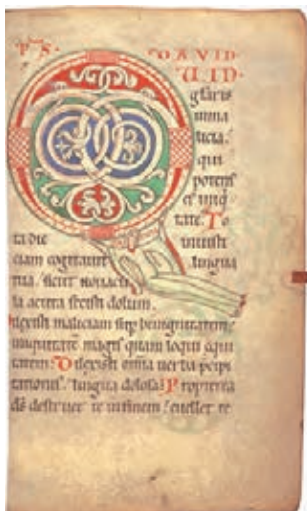 PS DAVID
UID
gloris
inma
licia?
qui
potens
es iniq
tate. To
ta die iniusti
ciam cogitavit lingua
tua. sicut novacu
la acuta fecisti dolum.
ilexisti maliciam sup benignitatem:
iniquitatem magis quam loqui equi
tatem. Dilexisti omia verba pcipi
tationis. lingua dolosa. Propterea
ds destruet te in finem! evellet te